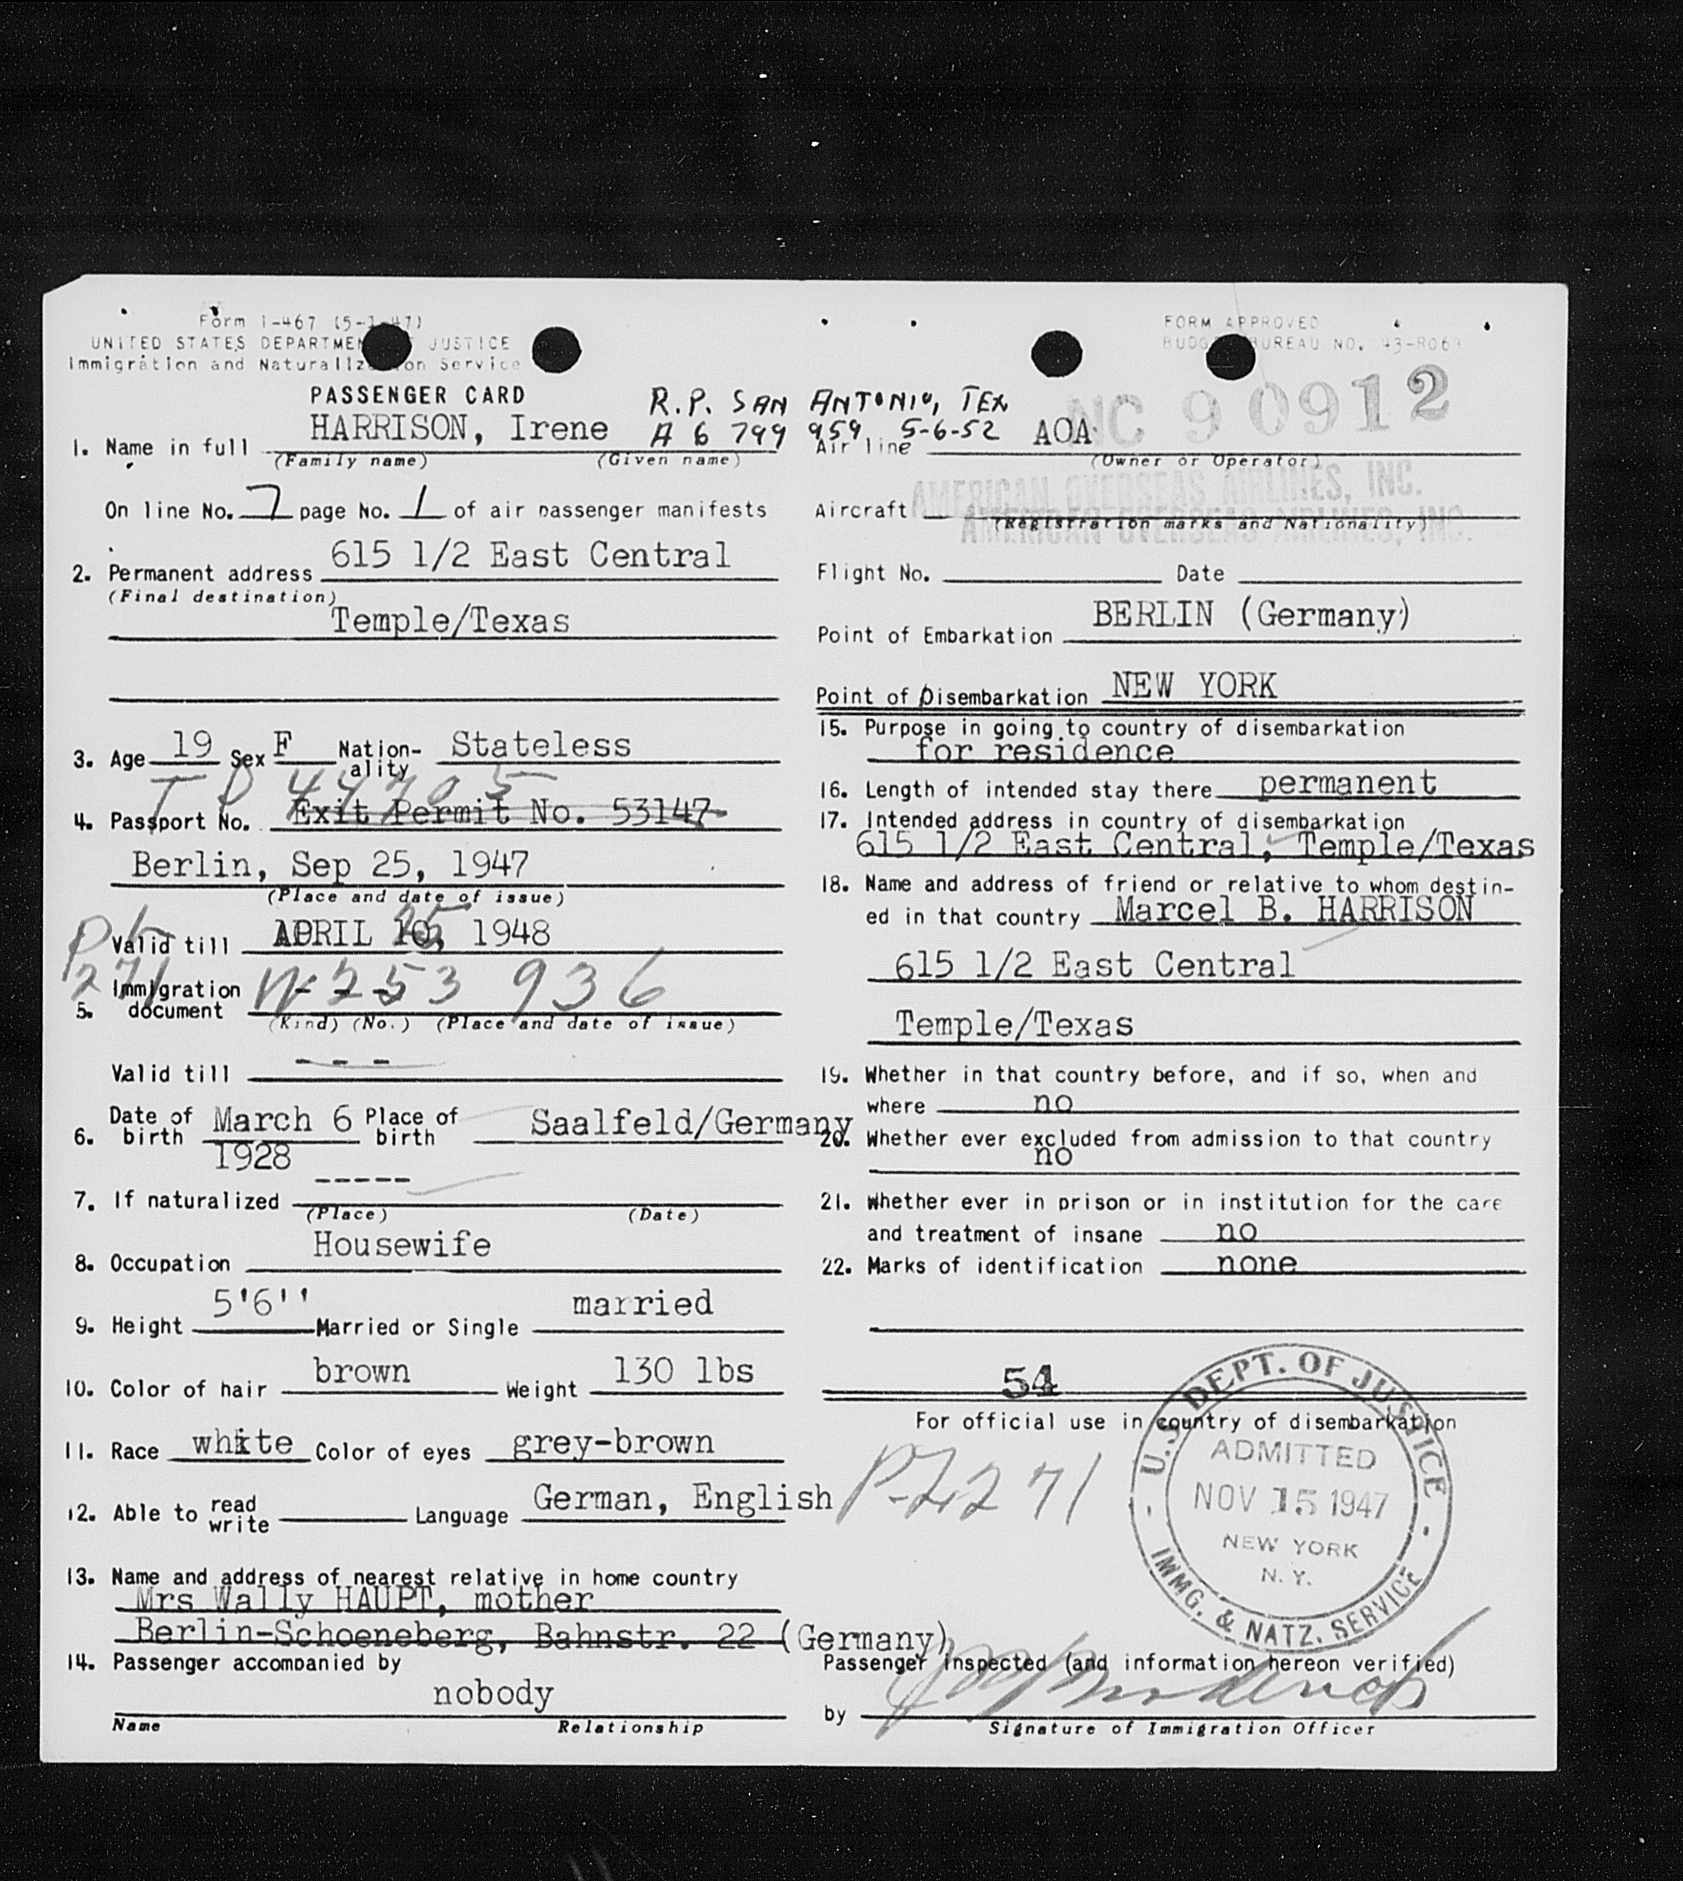 Form I-467 (5-1-47)
UNITED STATES DEPARTMENT OF JUSTICE
Immigration and Naturalization Service
PASSENGER CARD
R.P. SAN ANTONIO, TEX
A 6 799 959 5-6-52
1. Name in full HARRISON, Irene
(Family name) (Given name)
On line No. 7 page No. 1 of air passenger manifests
2. Permanent address 615 1/2 East Central
(Final destination)
Temple/Texas
3. Age 19 Sex F Nationality Stateless
4. Passport No. Exit Permit No. 53147
Berlin, Sep 25, 1947
(Place and date of issue)
Valid till APRIL 1948
5. Immigration document
253 936
(Kind) (No.) (Place and date of issue)
Valid till - - -
6. Date of birth March 6 1928 Place of birth Saalfeld/Germany
7. If naturalized -----
(Place) (Date)
8. Occupation Housewife
9. Height 5'6'' Married or Single married
10. Color of hair brown Weight 130 lbs
11. Race white Color of eyes grey-brown
12. Able to read write Language German, English
13. Name and address of nearest relative in home country
Mrs Wally HAUPT, mother
Berlin-Schoeneberg, Bahnstr. 22 (Germany)
14. Passenger accompanied by
nobody
Name Relationship
FORM APPROVED
BUDGET BUREAU NO. 43-R063
NC 90912
Air line AOA
(Owner or Operator)
AMERICAN OVERSEAS AIRLINES, INC.
Aircraft
(Registration marks and Nationality)
AMERICAN OVERSEAS AIRLINES, INC.
Flight No. Date
Point of Embarkation BERLIN (Germany)
Point of Disembarkation NEW YORK
15. Purpose in going to country of disembarkation
for residence
16. Length of intended stay there permanent
17. Intended address in country of disembarkation
615 1/2 East Central, Temple/Texas
18. Name and address of friend or relative to whom destin-
ed in that country Marcel B. HARRISON
615 1/2 East Central
Temple/Texas
19. Whether in that country before, and if so, when and
where no
20. Whether ever excluded from admission to that country
no
21. Whether ever in prison or in institution for the care
and treatment of insane no
22. Marks of identification none
54
For official use in country of disembarkation
U.S. DEPT. OF JUSTICE
ADMITTED
NOV 15 1947
NEW YORK
N. Y.
IMMG. & NATZ. SERVICE
Passenger inspected (and information hereon verified)
by
Signature of Immigration Officer